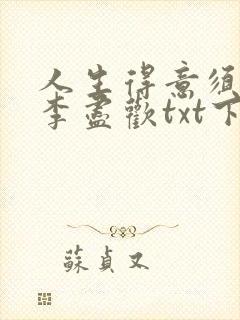 人生得意须
李盡歡txt下
蘇貞又